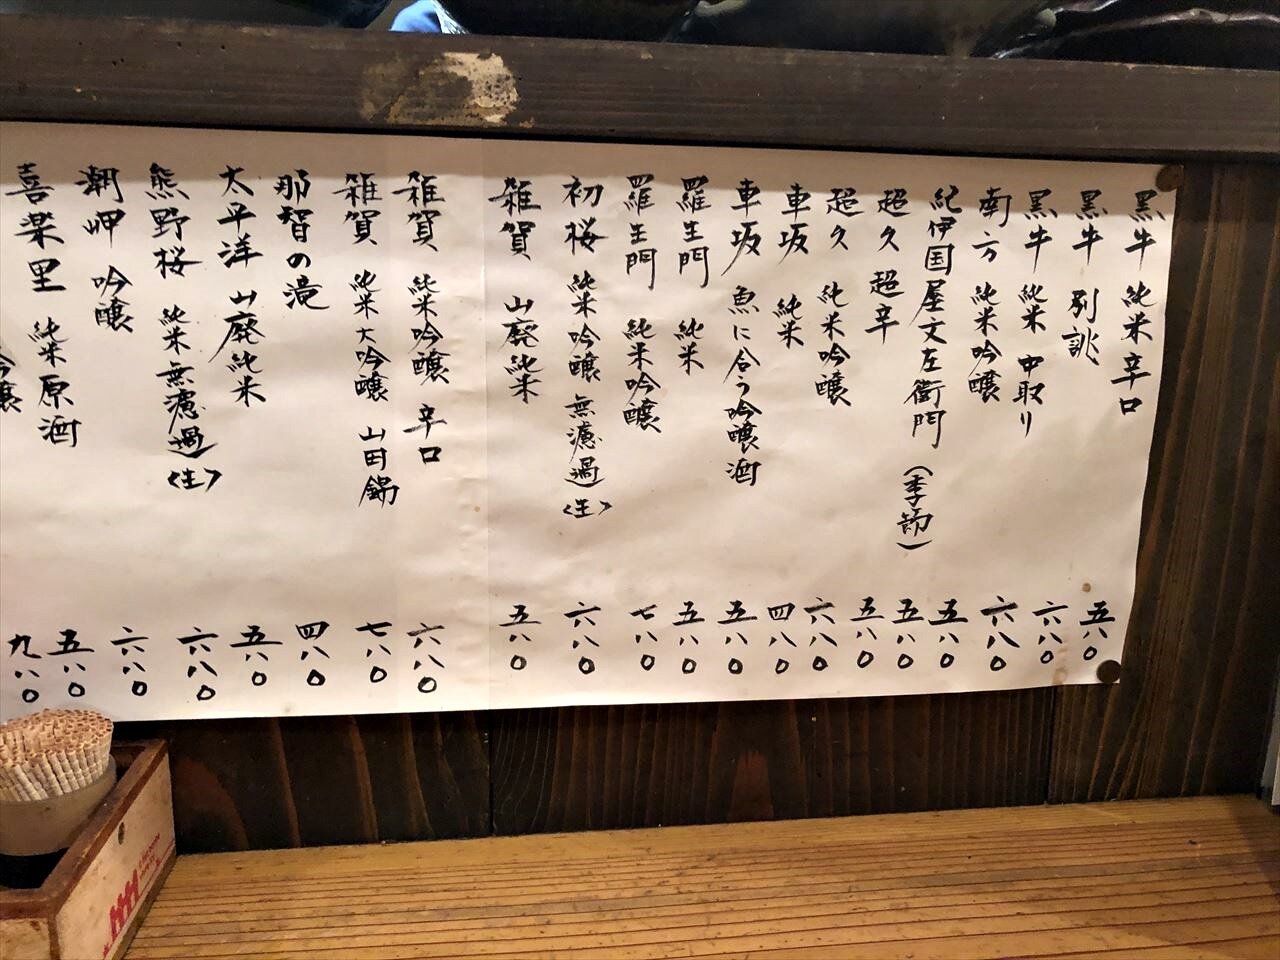 黒牛 純米辛口 五八〇
黒牛 別誂 六八〇
黒牛 純米 中取り 六八〇
南方 純米吟醸 五八〇
紀伊国屋文左衛門(季節) 五八〇
超久 超辛 五八〇
超久 純米吟醸 六八〇
車坂 純米 四八〇
車坂 魚に合う吟醸酒 五八〇
羅生門 純米 五八〇
羅生門 純米吟醸 七八〇
初桜 純米吟醸 無濾過〈生〉 六八〇
雑賀 山廃純米 五八〇
雑賀 純米吟醸 辛口 六八〇
雑賀 純米大吟醸 山田錦 七八〇
那智の滝 四八〇
太平洋 山廃純米 五八〇
熊野桜 純米無濾過〈生〉 六八〇
潮岬 吟醸 六八〇
喜楽里 純米原酒 五八〇
吟醸 九八〇